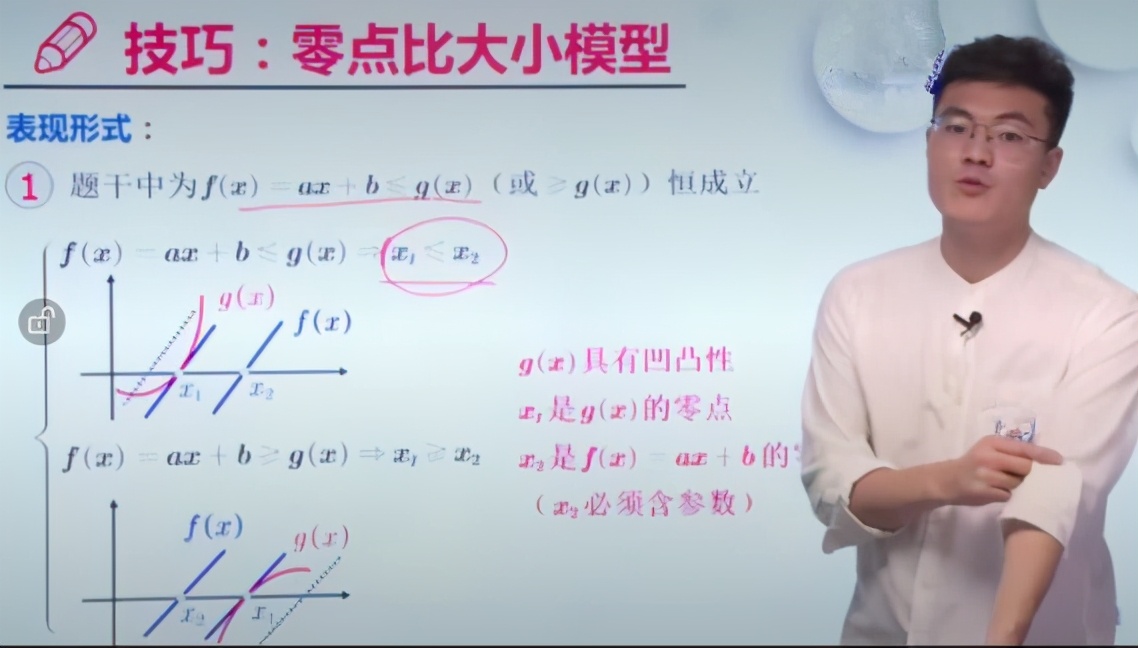 技巧：零点比大小模型
表现形式：
① 题干中为f(x)=ax+b≤g(x)（或≥g(x)）恒成立
f(x)=ax+b≤g(x)⇒x₁≤x₂
g(x)
f(x)
x₁ x₂
g(x)具有凹凸性
x₁是g(x)的零点
f(x)=ax+b≥g(x)⇒x₁≥x₂
x₂是f(x)=ax+b的
（x₂必须含参数）
f(x)
g(x)
x₂ x₁